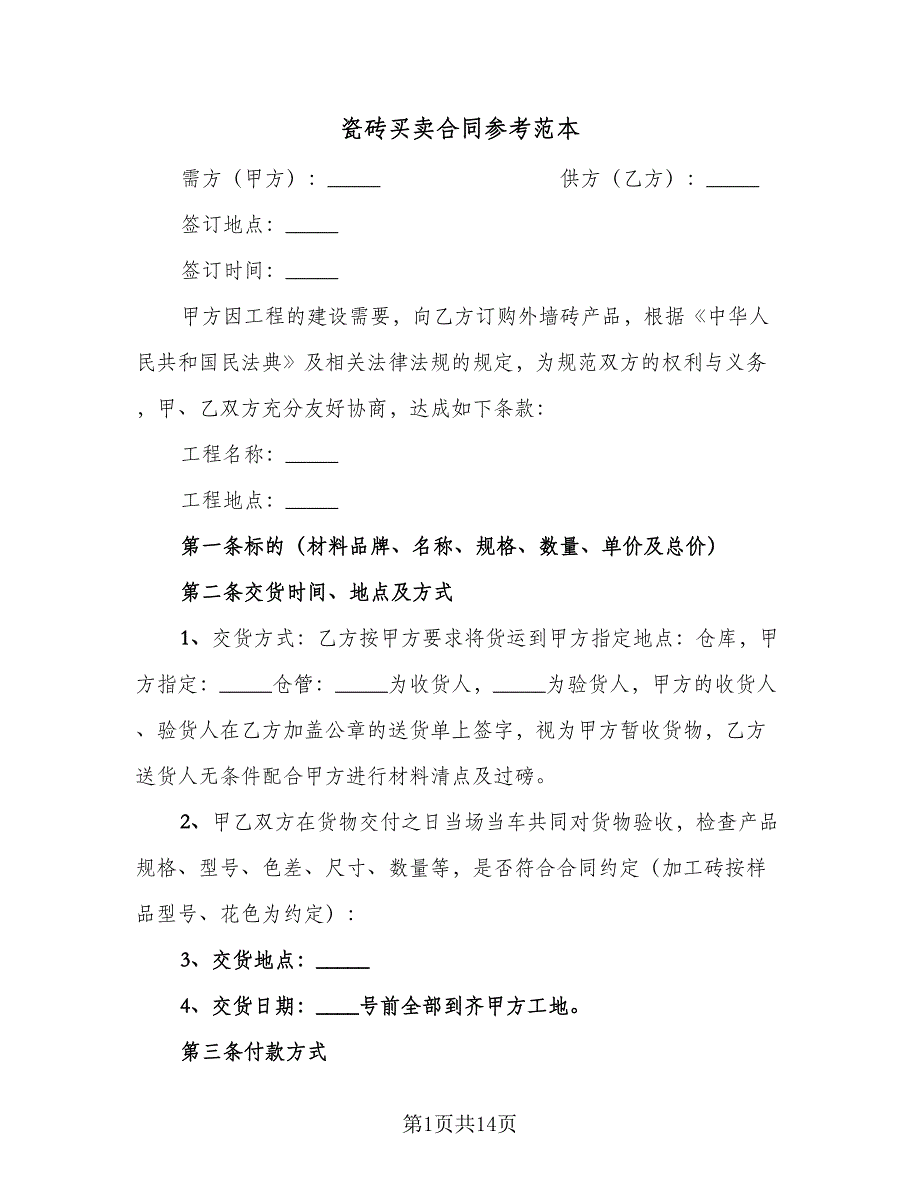 瓷砖买卖合同参考范本
需方（甲方）：_____ 供方（乙方）：_____
签订地点：_____
签订时间：_____
甲方因工程的建设需要，向乙方订购外墙砖产品，根据《中华人
民共和国民法典》及相关法律法规的规定，为规范双方的权利与义务
，甲、乙双方充分友好协商，达成如下条款：
工程名称：_____
工程地点：_____
第一条标的（材料品牌、名称、规格、数量、单价及总价）
第二条交货时间、地点及方式
1、交货方式：乙方按甲方要求将货运到甲方指定地点：仓库，甲
方指定：_____仓管：_____为收货人，_____为验货人，甲方的收货人
、验货人在乙方加盖公章的送货单上签字，视为甲方暂收货物，乙方
送货人无条件配合甲方进行材料清点及过磅。
2、甲乙双方在货物交付之日当场当车共同对货物验收，检查产品
规格、型号、色差、尺寸、数量等，是否符合合同约定（加工砖按样
品型号、花色为约定）：
3、交货地点：_____
4、交货日期：____号前全部到齐甲方工地。
第三条付款方式
第1页共14页